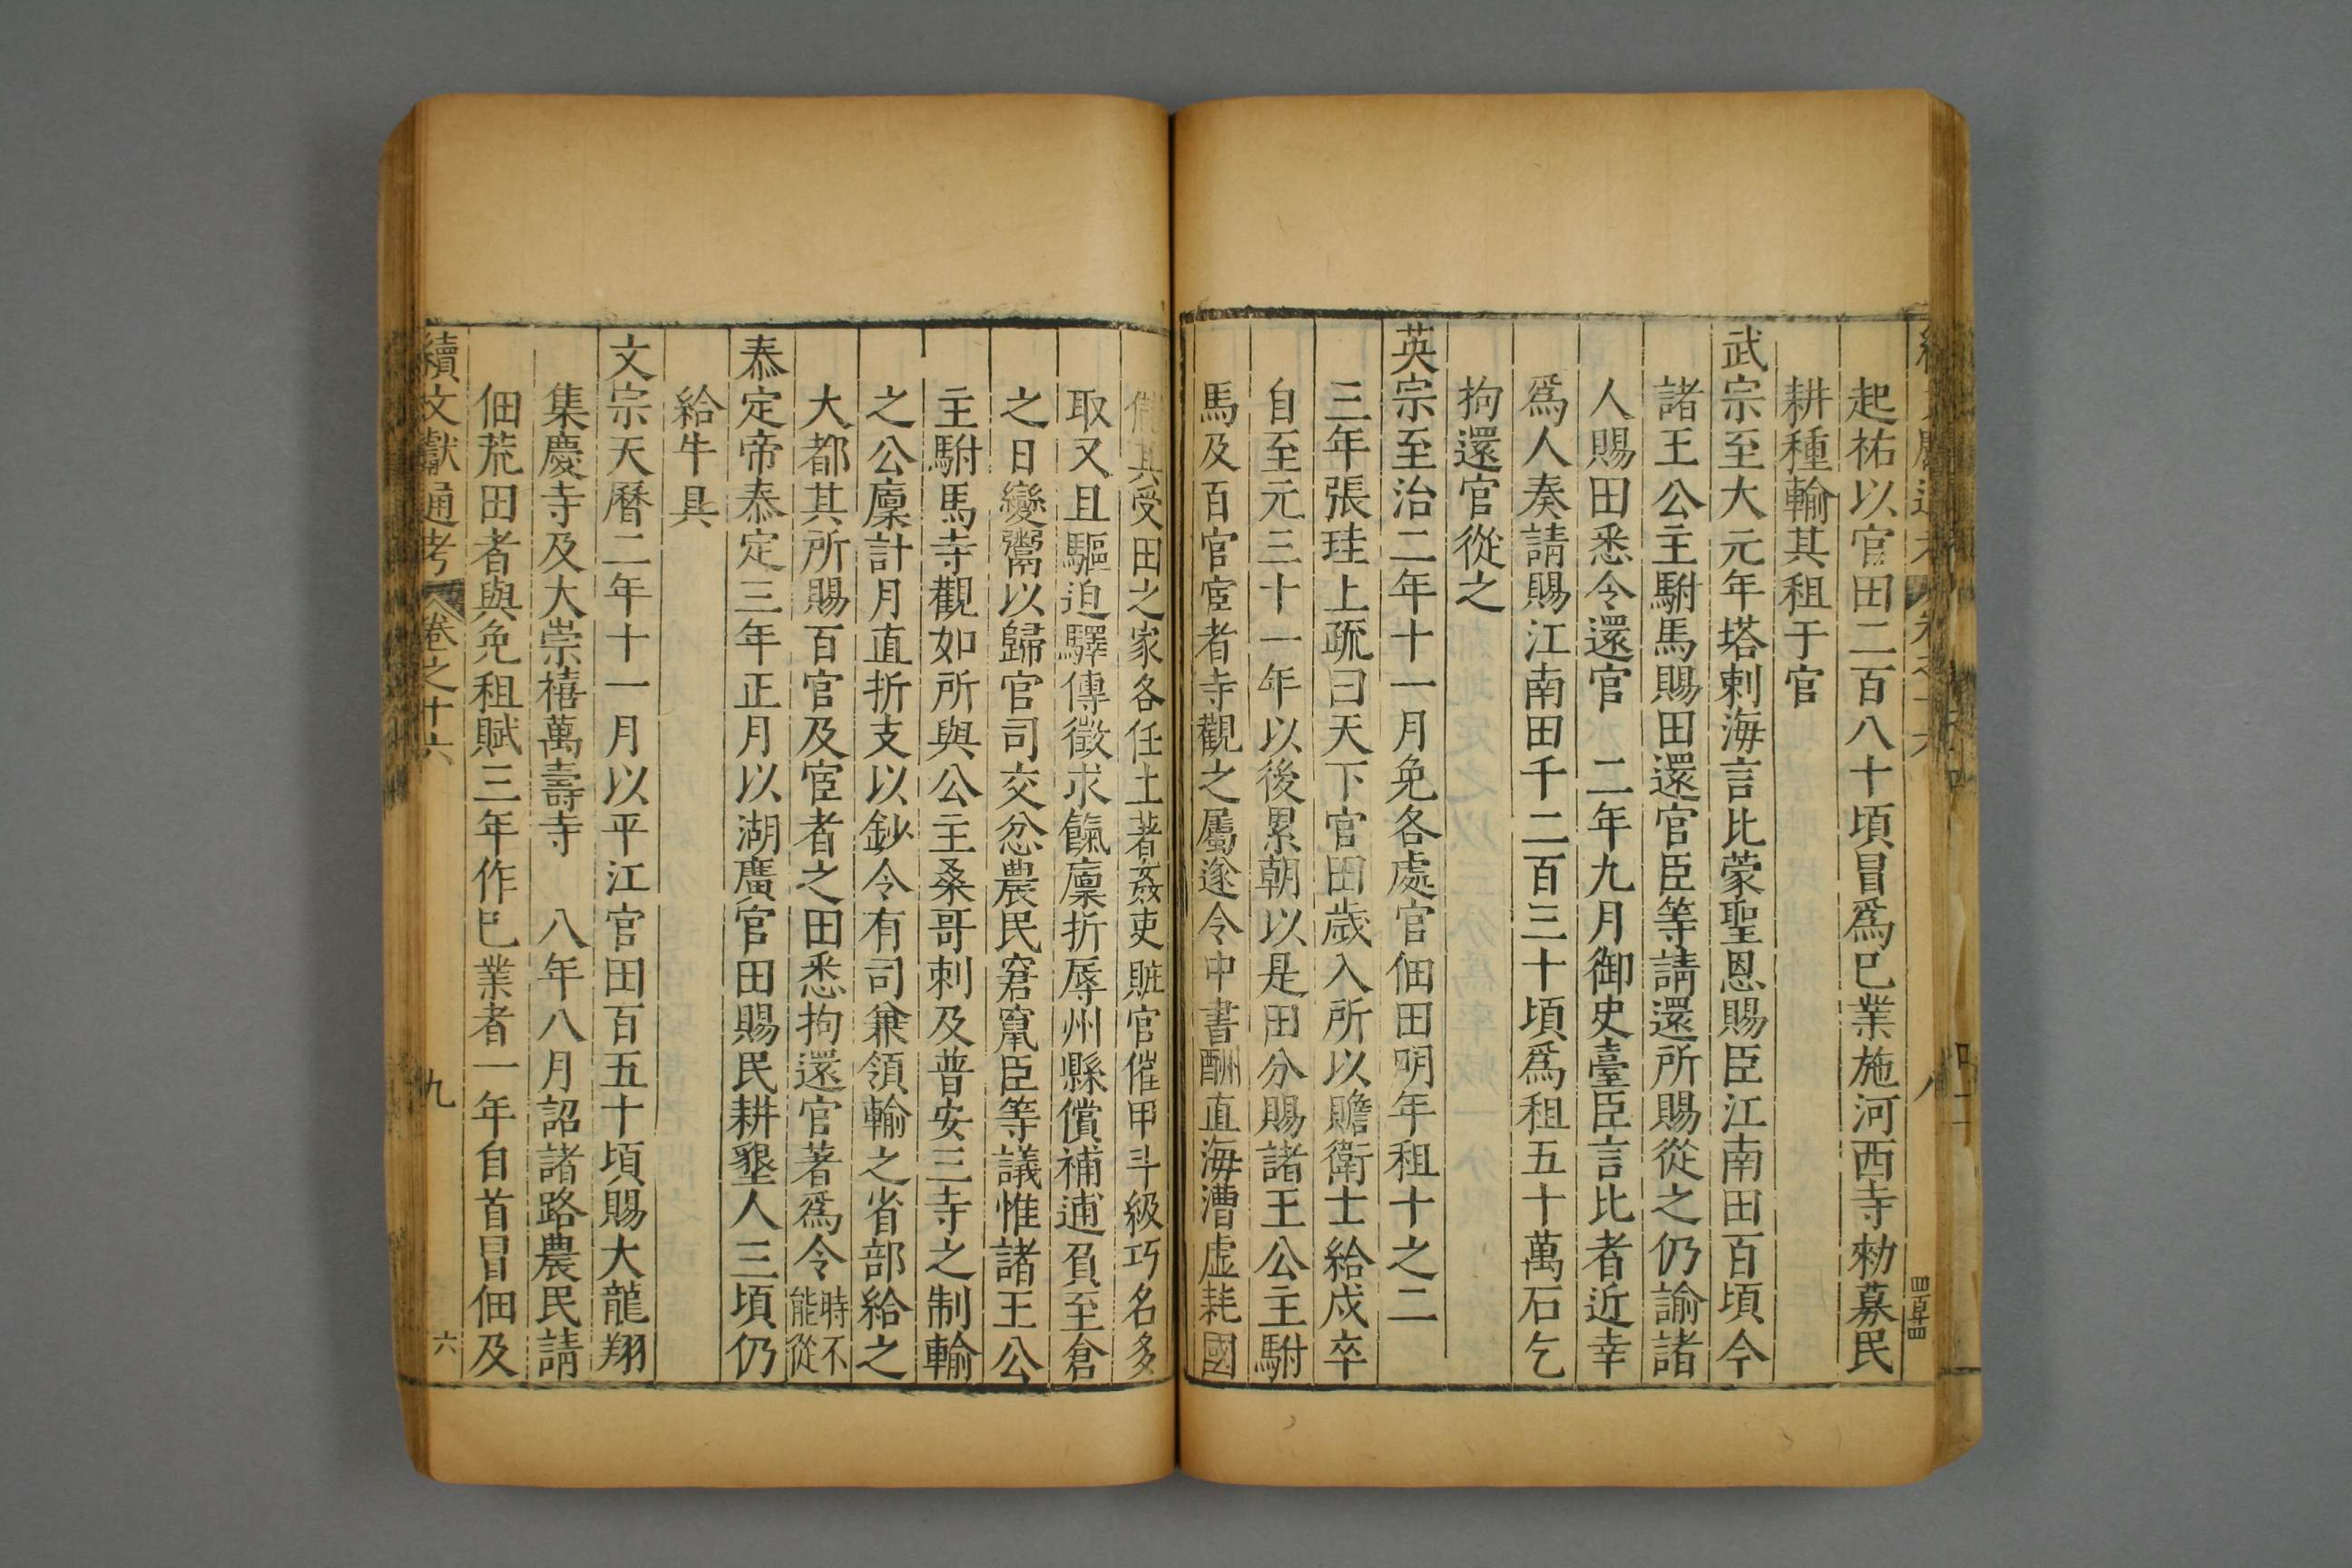 起祐以官田二百八十頃冒爲巳業施河西寺勑募民
耕種輸其租于官
武宗至大元年塔剌海言比蒙聖恩賜臣江南田百頃今
諸王公主駙馬賜田還官臣等請還所賜從之仍諭諸
人賜田悉令還官 二年九月御史臺臣言比者近幸
爲人奏請賜江南田千二百三十頃爲租五十萬石乞
拘還官從之
英宗至治二年十一月免各處官佃田明年租十之二
三年張珪上疏曰天下官田歲入所以贍衛士給戍卒
自至元三十一年以後累朝以是田分賜諸王公主駙
馬及百官宦者寺觀之屬遂令中書酬直海漕虛耗國
儲其受田之家各任土著姦吏賍官催甲斗級巧名多
取又且驅迫驛傳徵求餼廩折辱州縣償補逋負至倉
之日變鬻以歸官司交忿農民窘竄臣等議惟諸王公
主駙馬寺觀如所與公主桑哥剌及普安三寺之制輸
之公廩計月直折支以鈔令有司兼領輸之省部給之
大都其所賜百官及宦者之田悉拘還官著爲令時不能從
泰定帝泰定三年正月以湖廣官田賜民耕墾人三頃仍
給牛具
文宗天曆二年十一月以平江官田百五十頃賜大龍翔
集慶寺及大崇禧萬壽寺 八年八月詔諸路農民請
佃荒田者與免租賦三年作巳業者一年自首冒佃及
續文獻通考 卷之十六 九 六